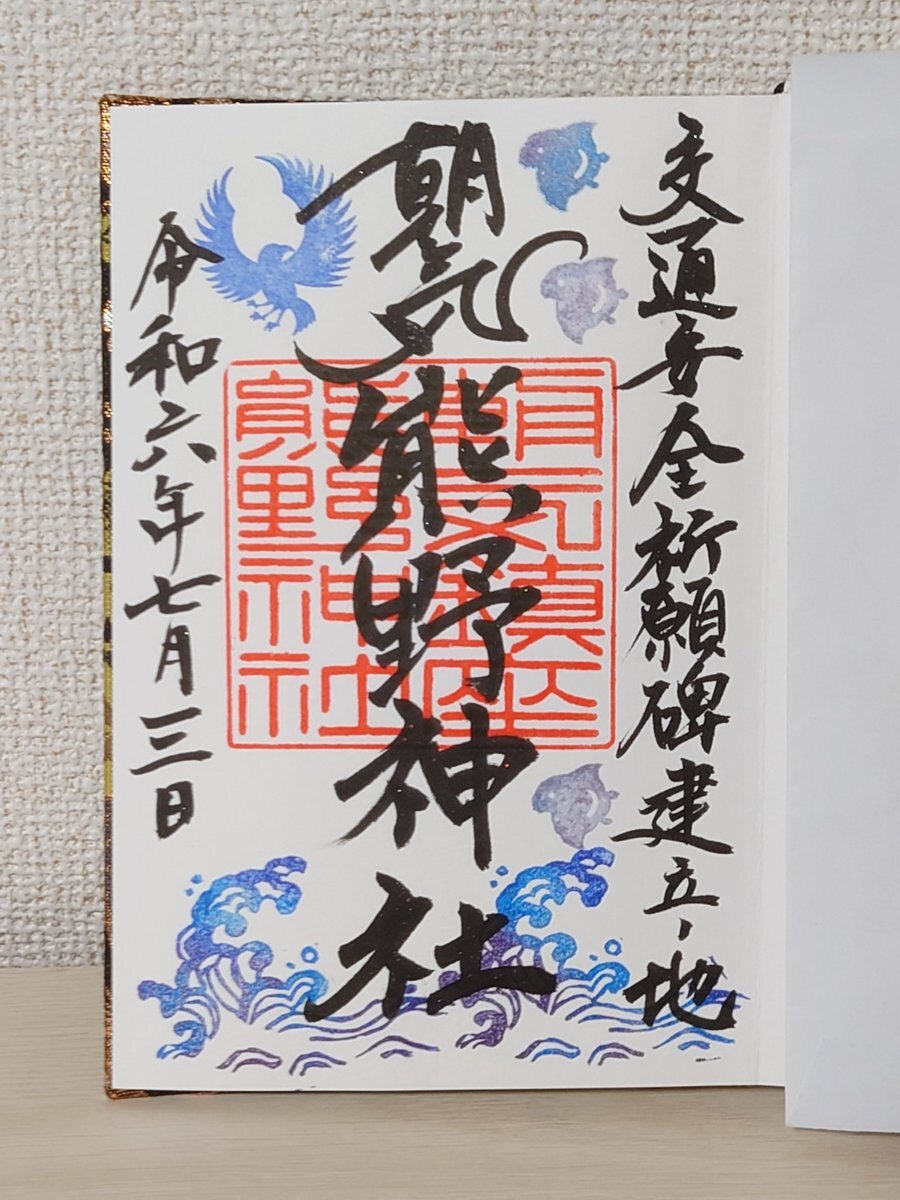 交通安全祈願碑建立ノ地
朝気熊野神社
令和六年七月三日